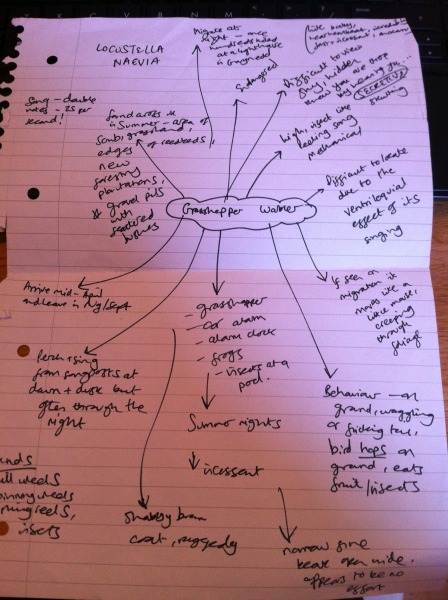 LOCUSTELLA
NAEVIA
Migrate at
night - once
hundreds
at a lighthouse
in
endangered
Difficult to view
shy, hidden
know you are there
by hearing
SECRETIVE
skulking
Song - double
notes - 25 per
second!
Found across
in Summer - area of
Scrub, grassland,
edges of reedbeds,
new
forestry
plantations,
gravel pits
with
scattered
bushes
high, insect like
reeling song
mechanical
Difficult to locate
due to the
ventriloquial
effect of its
singing
Grasshopper Warbler
Arrive mid-April
and leave in Aug/Sept
If seen on
migration it
moves like a
little mouse,
creeping
through
foliage
- grasshopper
- car alarm
- alarm clock
- frogs
- insects at a
pool.
Perch + sing
from songposts at
dawn + dusk but
often through the
night
Summer nights
incessant
Behaviour - on
ground, waggling
or flicking tail,
bird hops on
ground, eats
fruit/insects
reeds
reels,
insects
Shabby brown
coat, raggedy
narrow fine
beak open wide.
appears to be no
effort